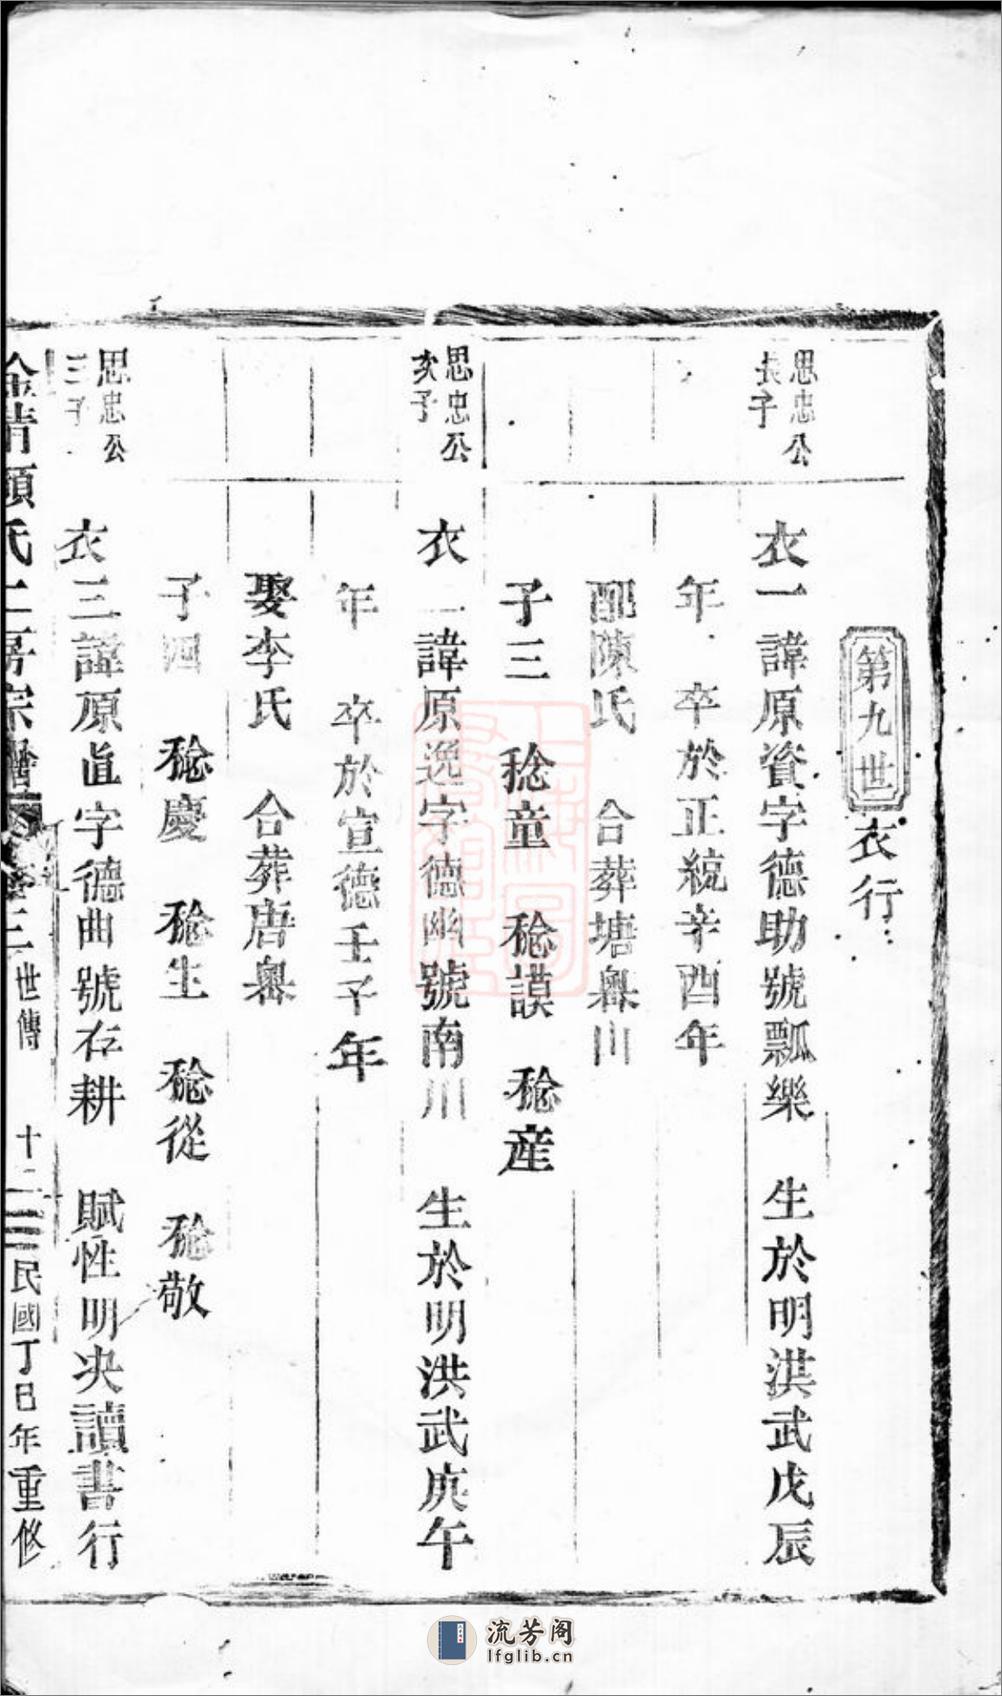 第九世 衣行
思忠公
長子
衣一諱原資字德助號瓢樂 生於明洪武戊辰
年 卒於正統辛酉年
配陳氏 合葬塘嶴川
子三 稔童 稔謨 稔産
思忠公
次子
衣二諱原逸字德幽號南川 生於明洪武庚午
年 卒於宣德壬子年
娶李氏 合葬唐嶴
子四 稔慶 稔生 稔從 稔敬
思忠公
三子
衣三諱原直字德曲號存耕 賦性明決讀書行
氏二房宗譜 卷三 世傳 十二 民國丁巳年重修
流芳阁
lfglib.cn